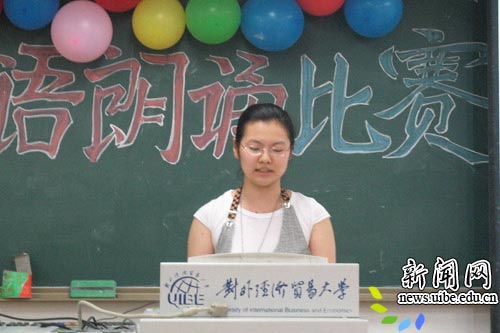 语朗诵比赛
UIBE
對外經濟貿易大學
University of International Business and Economics
新闻网
news.uibe.edu.cn